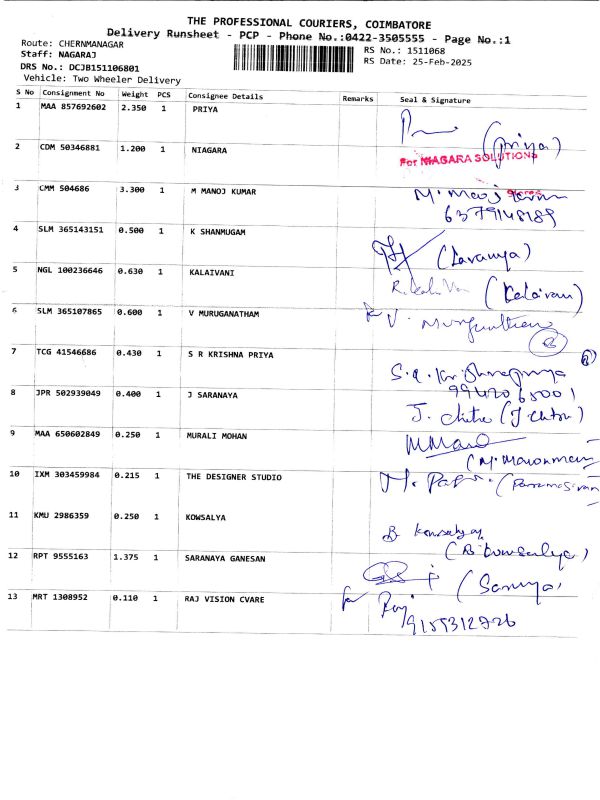 THE PROFESSIONAL COURIERS, COIMBATORE
Delivery Runsheet - PCP - Phone No.:0422-3505555 - Page No.:1
Route: CHERNMANAGAR
Staff: NAGARAJ
RS No.: 1511068
RS Date: 25-Feb-2025
DRS No.: DCJB151106801
Vehicle: Two Wheeler Delivery
S No Consignment No Weight PCS Consignee Details Remarks Seal & Signature
1 MAA 857692602 2.350 1 PRIYA
(priya)
2 CDM 50346881 1.200 1 NIAGARA
For NIAGARA SOLUTIONS
3 CMM 504686 3.300 1 M MANOJ KUMAR
M. Manoj Kumar
6379148189
4 SLM 365143151 0.500 1 K SHANMUGAM
(Lavanya)
5 NGL 100236646 0.630 1 KALAIVANI
(Kalaivani)
6 SLM 365107865 0.600 1 V MURUGANATHAM
V.
7 TCG 41546686 0.430 1 S R KRISHNA PRIYA
S.R. Krishnapriya
8 JPR 502939049 0.400 1 J SARANAYA
J. Chitra (J Chitra)
9 MAA 650602849 0.250 1 MURALI MOHAN
10 IXM 303459984 0.215 1 THE DESIGNER STUDIO
(Paramasivam)
11 KMU 2986359 0.250 1 KOWSALYA
B Kowsalya
(B. Kowsalya)
12 RPT 9555163 1.375 1 SARANAYA GANESAN
(Saranya)
13 MRT 1308952 0.110 1 RAJ VISION CVARE
for Raj
9155312726